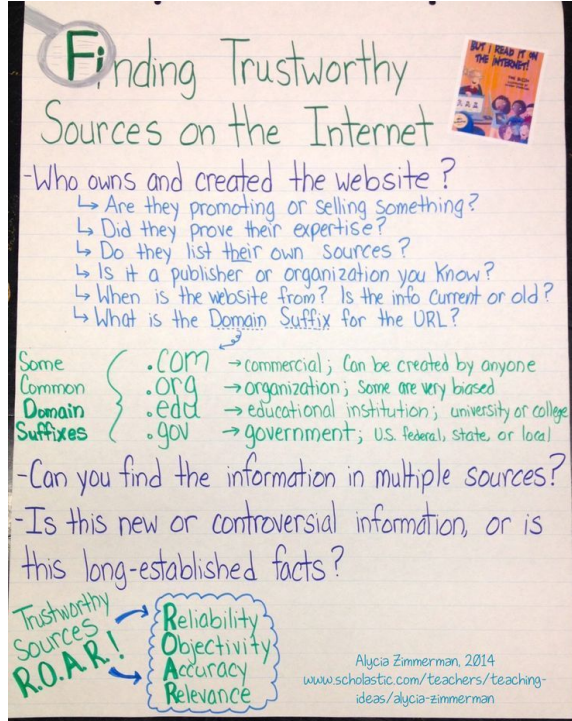 Finding Trustworthy
Sources on the Internet
BUT I READ IT ON
THE INTERNET!
-Who owns and created the website?
↳ Are they promoting or selling something?
↳ Did they prove their expertise?
↳ Do they list their own sources?
↳ Is it a publisher or organization you know?
↳ When is the website from? Is the info current or old?
↳ What is the Domain Suffix for the URL?
Some
Common
Domain
Suffixes
.com → commercial; Can be created by anyone
.org → organization; Some are very biased
.edu → educational institution; university or college
.gov → government; U.S. federal, state, or local
-Can you find the information in multiple sources?
-Is this new or controversial information, or is
this long-established facts?
Trustworthy
Sources
R.O.A.R.!
Reliability
Objectivity
Accuracy
Relevance
Alycia Zimmerman, 2014
www.scholastic.com/teachers/teaching-
ideas/alycia-zimmerman